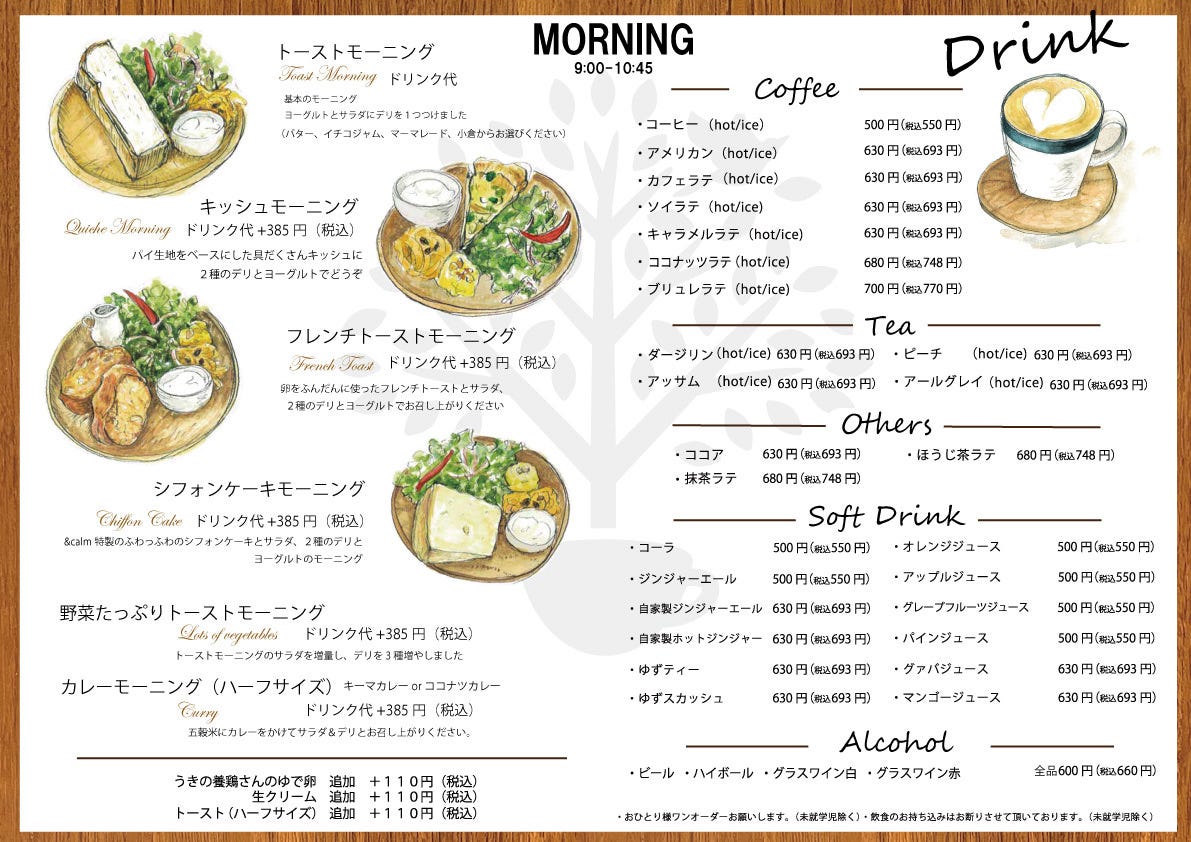 MORNING
9:00-10:45
トーストモーニング
Toast Morning ドリンク代
基本のモーニング
ヨーグルトとサラダにデリを１つつけました
（バター、イチゴジャム、マーマレード、小倉からお選びください）
キッシュモーニング
Quiche Morning ドリンク代 +385 円（税込）
パイ生地をベースにした具だくさんキッシュに
２種のデリとヨーグルトでどうぞ
フレンチトーストモーニング
French Toast ドリンク代 +385 円（税込）
卵をふんだんに使ったフレンチトーストとサラダ、
２種のデリとヨーグルトでお召し上がりください
シフォンケーキモーニング
Chiffon Cake ドリンク代 +385 円（税込）
&calm 特製のふわっふわのシフォンケーキとサラダ、２種のデリと
ヨーグルトのモーニング
野菜たっぷりトーストモーニング
Lots of vegetables ドリンク代 +385 円（税込）
トーストモーニングのサラダを増量し、デリを３種増やしました
カレーモーニング（ハーフサイズ）キーマカレー or ココナツカレー
Curry ドリンク代 +385 円（税込）
五穀米にカレーをかけてサラダ＆デリとお召し上がりください。
うきの養鶏さんのゆで卵 追加 ＋１１０円（税込）
生クリーム 追加 ＋１１０円（税込）
トースト（ハーフサイズ） 追加 ＋１１０円（税込）
Drink
Coffee
・コーヒー（hot/ice） 500 円（税込550 円）
・アメリカン（hot/ice） 630 円（税込693 円）
・カフェラテ（hot/ice） 630 円（税込693 円）
・ソイラテ（hot/ice） 630 円（税込693 円）
・キャラメルラテ（hot/ice） 630 円（税込693 円）
・ココナッツラテ（hot/ice） 680 円（税込748 円）
・ブリュレラテ（hot/ice） 700 円（税込770 円）
Tea
・ダージリン（hot/ice） 630 円（税込693 円） ・ピーチ （hot/ice） 630 円（税込693 円）
・アッサム （hot/ice） 630 円（税込693 円） ・アールグレイ（hot/ice） 630 円（税込693 円）
Others
・ココア 630 円（税込693 円） ・ほうじ茶ラテ 680 円（税込748 円）
・抹茶ラテ 680 円（税込748 円）
Soft Drink
・コーラ 500 円（税込550 円） ・オレンジジュース 500 円（税込550 円）
・ジンジャーエール 500 円（税込550 円） ・アップルジュース 500 円（税込550 円）
・自家製ジンジャーエール 630 円（税込693 円） ・グレープフルーツジュース 500 円（税込550 円）
・自家製ホットジンジャー 630 円（税込693 円） ・パインジュース 500 円（税込550 円）
・ゆずティー 630 円（税込693 円） ・グァバジュース 630 円（税込693 円）
・ゆずスカッシュ 630 円（税込693 円） ・マンゴージュース 630 円（税込693 円）
Alcohol
・ビール ・ハイボール ・グラスワイン白 ・グラスワイン赤 全品600 円（税込660 円）
・おひとり様ワンオーダーお願いします。（未就学児除く）・飲食のお持ち込みはお断りさせて頂いております。（未就学児除く）